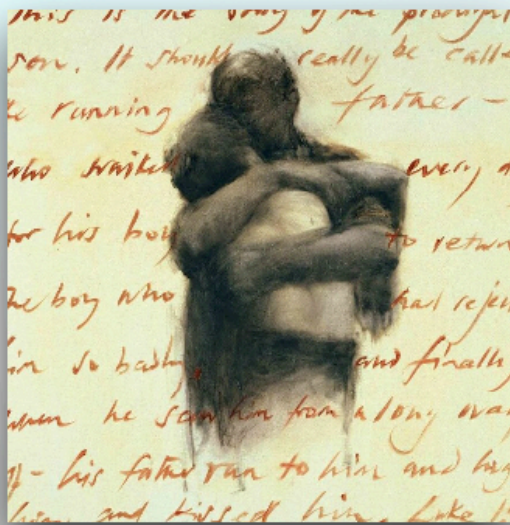 This is the story of the prodigal
son. It should really be calle
he running father -
who waited every d
for his boy to return
The boy who had rejec
him so badly, and finally
when he saw him from a long way
off - his father ran to him and hug
him and kissed him. Luke 1